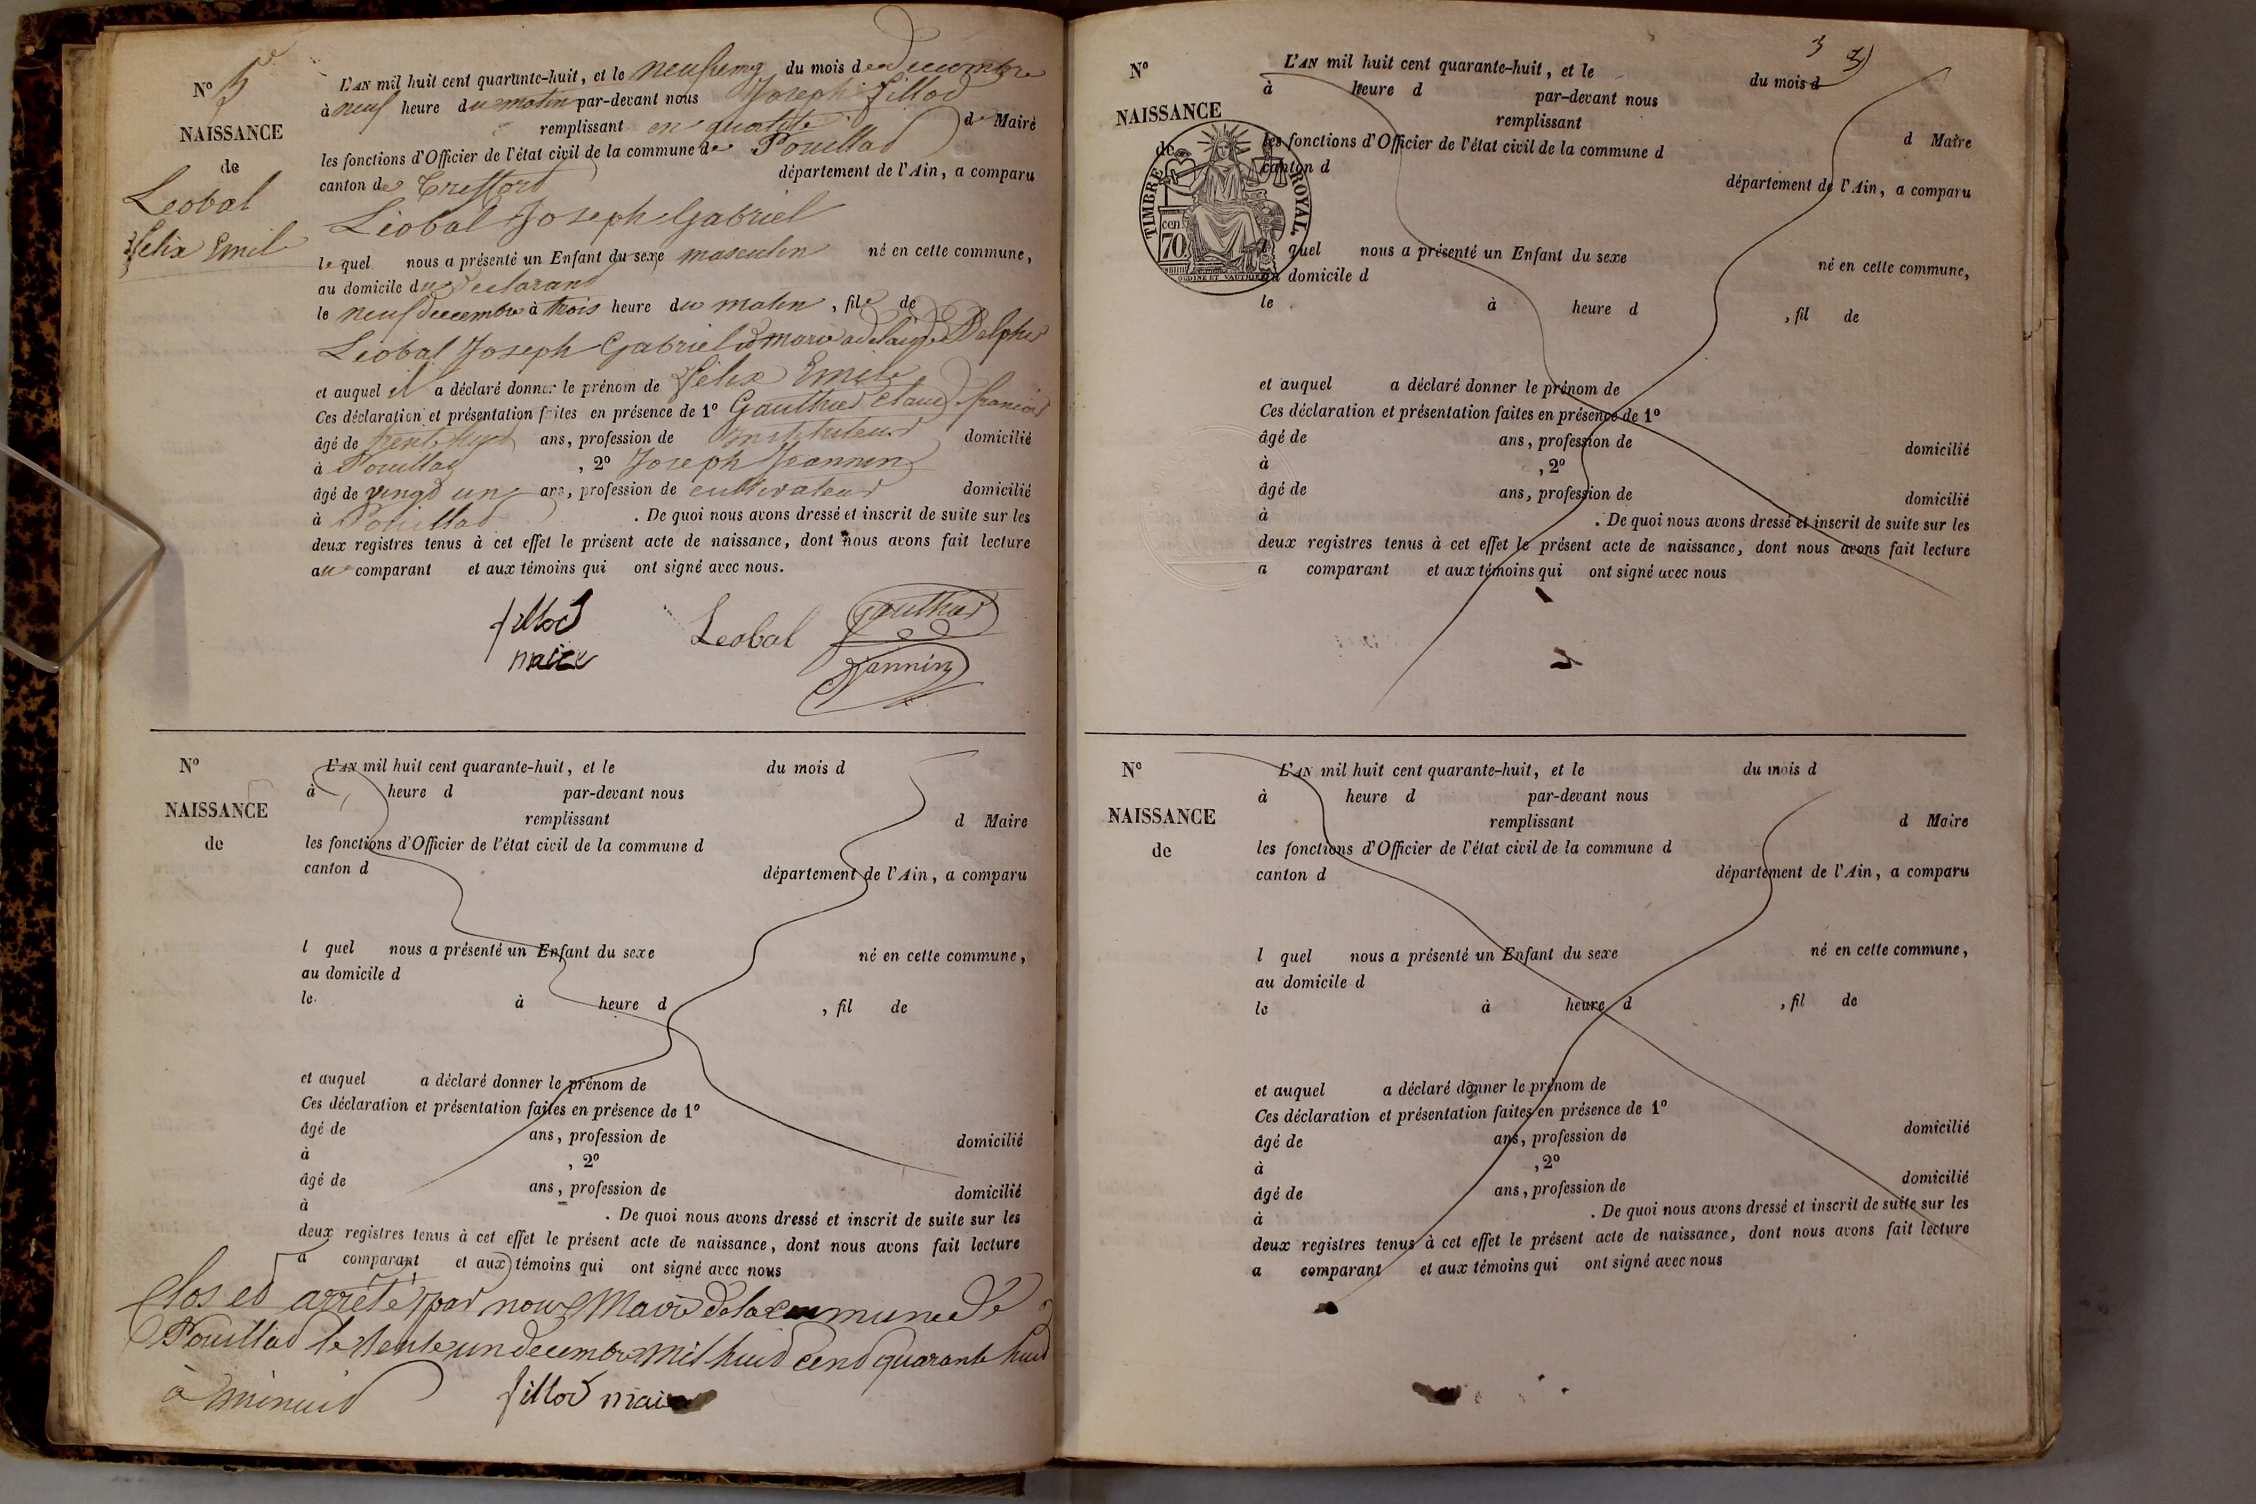 No 5
NAISSANCE
de
Leobal
Felix Emil
L'AN mil huit cent quarante-huit, et le neufieme du mois de decembre
à neuf heure du matin par-devant nous Joseph fillod
remplissant en qualité de Maire
les fonctions d'Officier de l'état civil de la commune de Pouillad
canton de Treffort département de l'Ain, a comparu
Léobal Joseph Gabriel
lequel nous a présenté un Enfant du sexe masculin né en cette commune,
au domicile du declarant
le neuf decembre à trois heure du matin, fils de
Leobal Joseph Gabriel et marie adelaide Delphis
et auquel il a déclaré donner le prénom de Félix Emile
Ces déclaration et présentation faites en présence de 1o Gauthier Claude francois
âgé de ans, profession de instituteur domicilié
à Pouillad, 2o Joseph Jeannin
âgé de vingt un ans, profession de cultivateur domicilié
à Pouillad. De quoi nous avons dressé et inscrit de suite sur les
deux registres tenus à cet effet le présent acte de naissance, dont nous avons fait lecture
au comparant et aux témoins qui ont signé avec nous.
fillod Leobal Gauthier
maire Jannin
No
NAISSANCE
de
L'AN mil huit cent quarante-huit, et le du mois d
à heure d par-devant nous
remplissant d Maire
les fonctions d'Officier de l'état civil de la commune d
canton d département de l'Ain, a comparu
l quel nous a présenté un Enfant du sexe né en cette commune,
au domicile d
le à heure d, fil de
et auquel a déclaré donner le prénom de
Ces déclaration et présentation faites en présence de 1o
âgé de ans, profession de domicilié
à, 2o
âgé de ans, profession de domicilié
à. De quoi nous avons dressé et inscrit de suite sur les
deux registres tenus à cet effet le présent acte de naissance, dont nous avons fait lecture
a comparant et aux témoins qui ont signé avec nous
Clos et arrêté par nous Maire de la commune de
Pouillad le trente un decembre mil huit cent quarante huit
à minuit fillod maire
3
No
NAISSANCE
de
TIMBRE ROYAL
70 cen
L'AN mil huit cent quarante-huit, et le du mois d
à heure d par-devant nous
remplissant d Maire
les fonctions d'Officier de l'état civil de la commune d
canton d département de l'Ain, a comparu
l quel nous a présenté un Enfant du sexe né en cette commune,
au domicile d
le à heure d, fil de
et auquel a déclaré donner le prénom de
Ces déclaration et présentation faites en présence de 1o
âgé de ans, profession de domicilié
à, 2o
âgé de ans, profession de domicilié
à. De quoi nous avons dressé et inscrit de suite sur les
deux registres tenus à cet effet le présent acte de naissance, dont nous avons fait lecture
a comparant et aux témoins qui ont signé avec nous
No
NAISSANCE
de
L'AN mil huit cent quarante-huit, et le du mois d
à heure d par-devant nous
remplissant d Maire
les fonctions d'Officier de l'état civil de la commune d
canton d département de l'Ain, a comparu
l quel nous a présenté un Enfant du sexe né en cette commune,
au domicile d
le à heure d, fil de
et auquel a déclaré donner le prénom de
Ces déclaration et présentation faites en présence de 1o
âgé de ans, profession de domicilié
à, 2o
âgé de ans, profession de domicilié
à. De quoi nous avons dressé et inscrit de suite sur les
deux registres tenus à cet effet le présent acte de naissance, dont nous avons fait lecture
a comparant et aux témoins qui ont signé avec nous